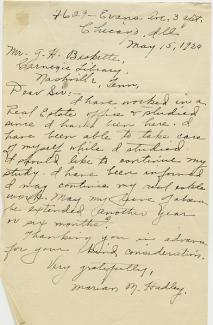 4629 - Evans Ave, 3 apt.
Chicago, Ill.
May 15, 1920
Mr. G. H.
Carnegie Library,
Nashville, Tenn,
Dear Sir:-
I have worked in a
Real Estate office & studied
since I have been here. I
have been able to take care
of myself while I studied
I should like to continue my
study. I have been informed
I may continue my real estate
work. May my leave of absence
be extended another year
or six months?
Thanking you in advance
for your kind consideration.
Very gratefully,
Marian M. Hadley.